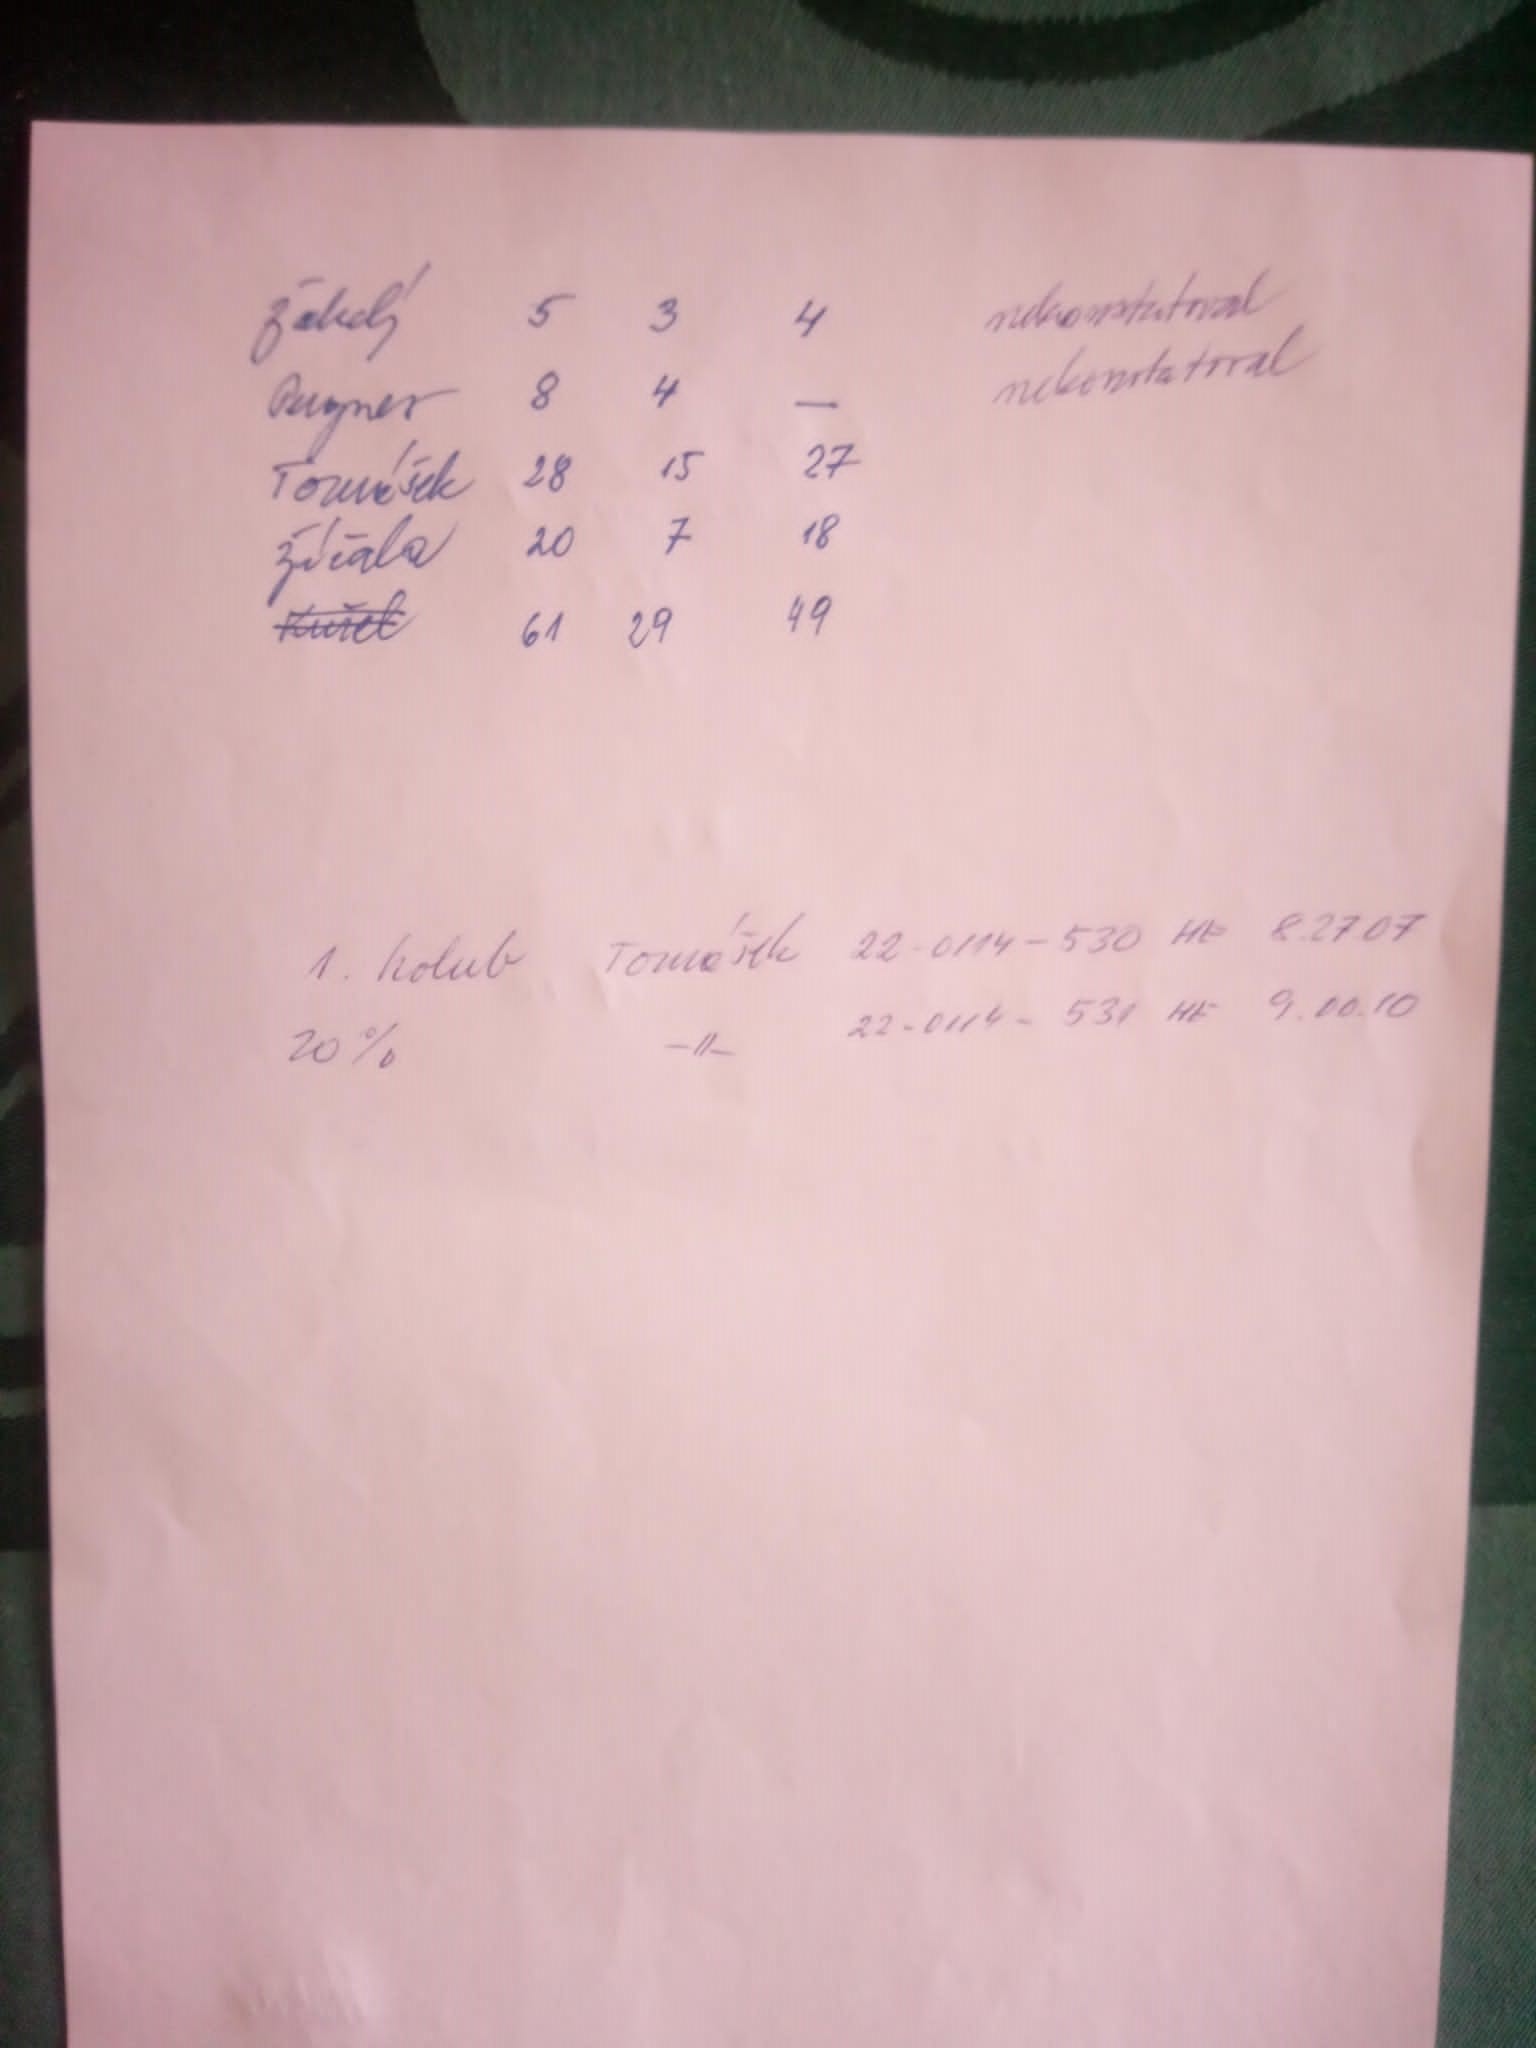 Žáký 5 3 4 nekonstatoval
Rugner 8 4 — nekonstatoval
Tomášek 28 15 27
Žíčala 20 7 18
Kužel 61 29 49
1. holub Tomášek 22-0114-530 HE 8.27.07
20% -//- 22-0114-531 HE 9.00.10